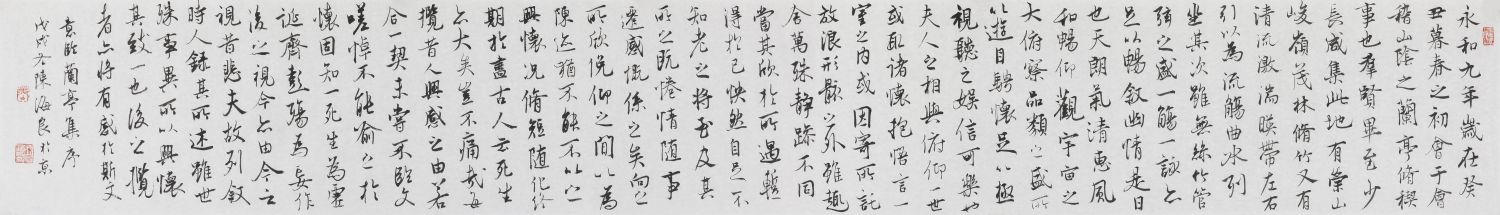 永和九年歲在癸
丑暮春之初會于會
稽山陰之蘭亭脩稧
事也羣賢畢至少
長咸集此地有崇山
峻嶺茂林脩竹又有
清流激湍暎帶左右
引以為流觴曲水列
坐其次雖無絲竹管
弦之盛一觴一詠亦
足以暢敘幽情是日
也天朗氣清惠風
和暢仰觀宇宙之
大俯察品類之盛所
以遊目騁懷足以極
視聽之娛信可樂也
夫人之相與俯仰一世
或取諸懷抱悟言一
室之內或因寄所託
放浪形骸之外雖趣
舍萬殊靜躁不同
當其欣於所遇暫
得於己快然自足不
知老之將至及其
所之既惓情隨事
遷感慨係之矣向之
所欣俛仰之間以為
陳迹猶不能不以之
興懷況脩短隨化終
期於盡古人云死生
亦大矣豈不痛哉每
攬昔人興感之由若
合一契未嘗不臨文
嗟悼不能喻之於
懷固知一死生為虛
誕齊彭殤為妄作
後之視今亦由今之
視昔悲夫故列敘
時人錄其所述雖世
殊事異所以興懷
其致一也後之攬
者亦將有感於斯文
意臨蘭亭集序
戊戌冬陳海良於京